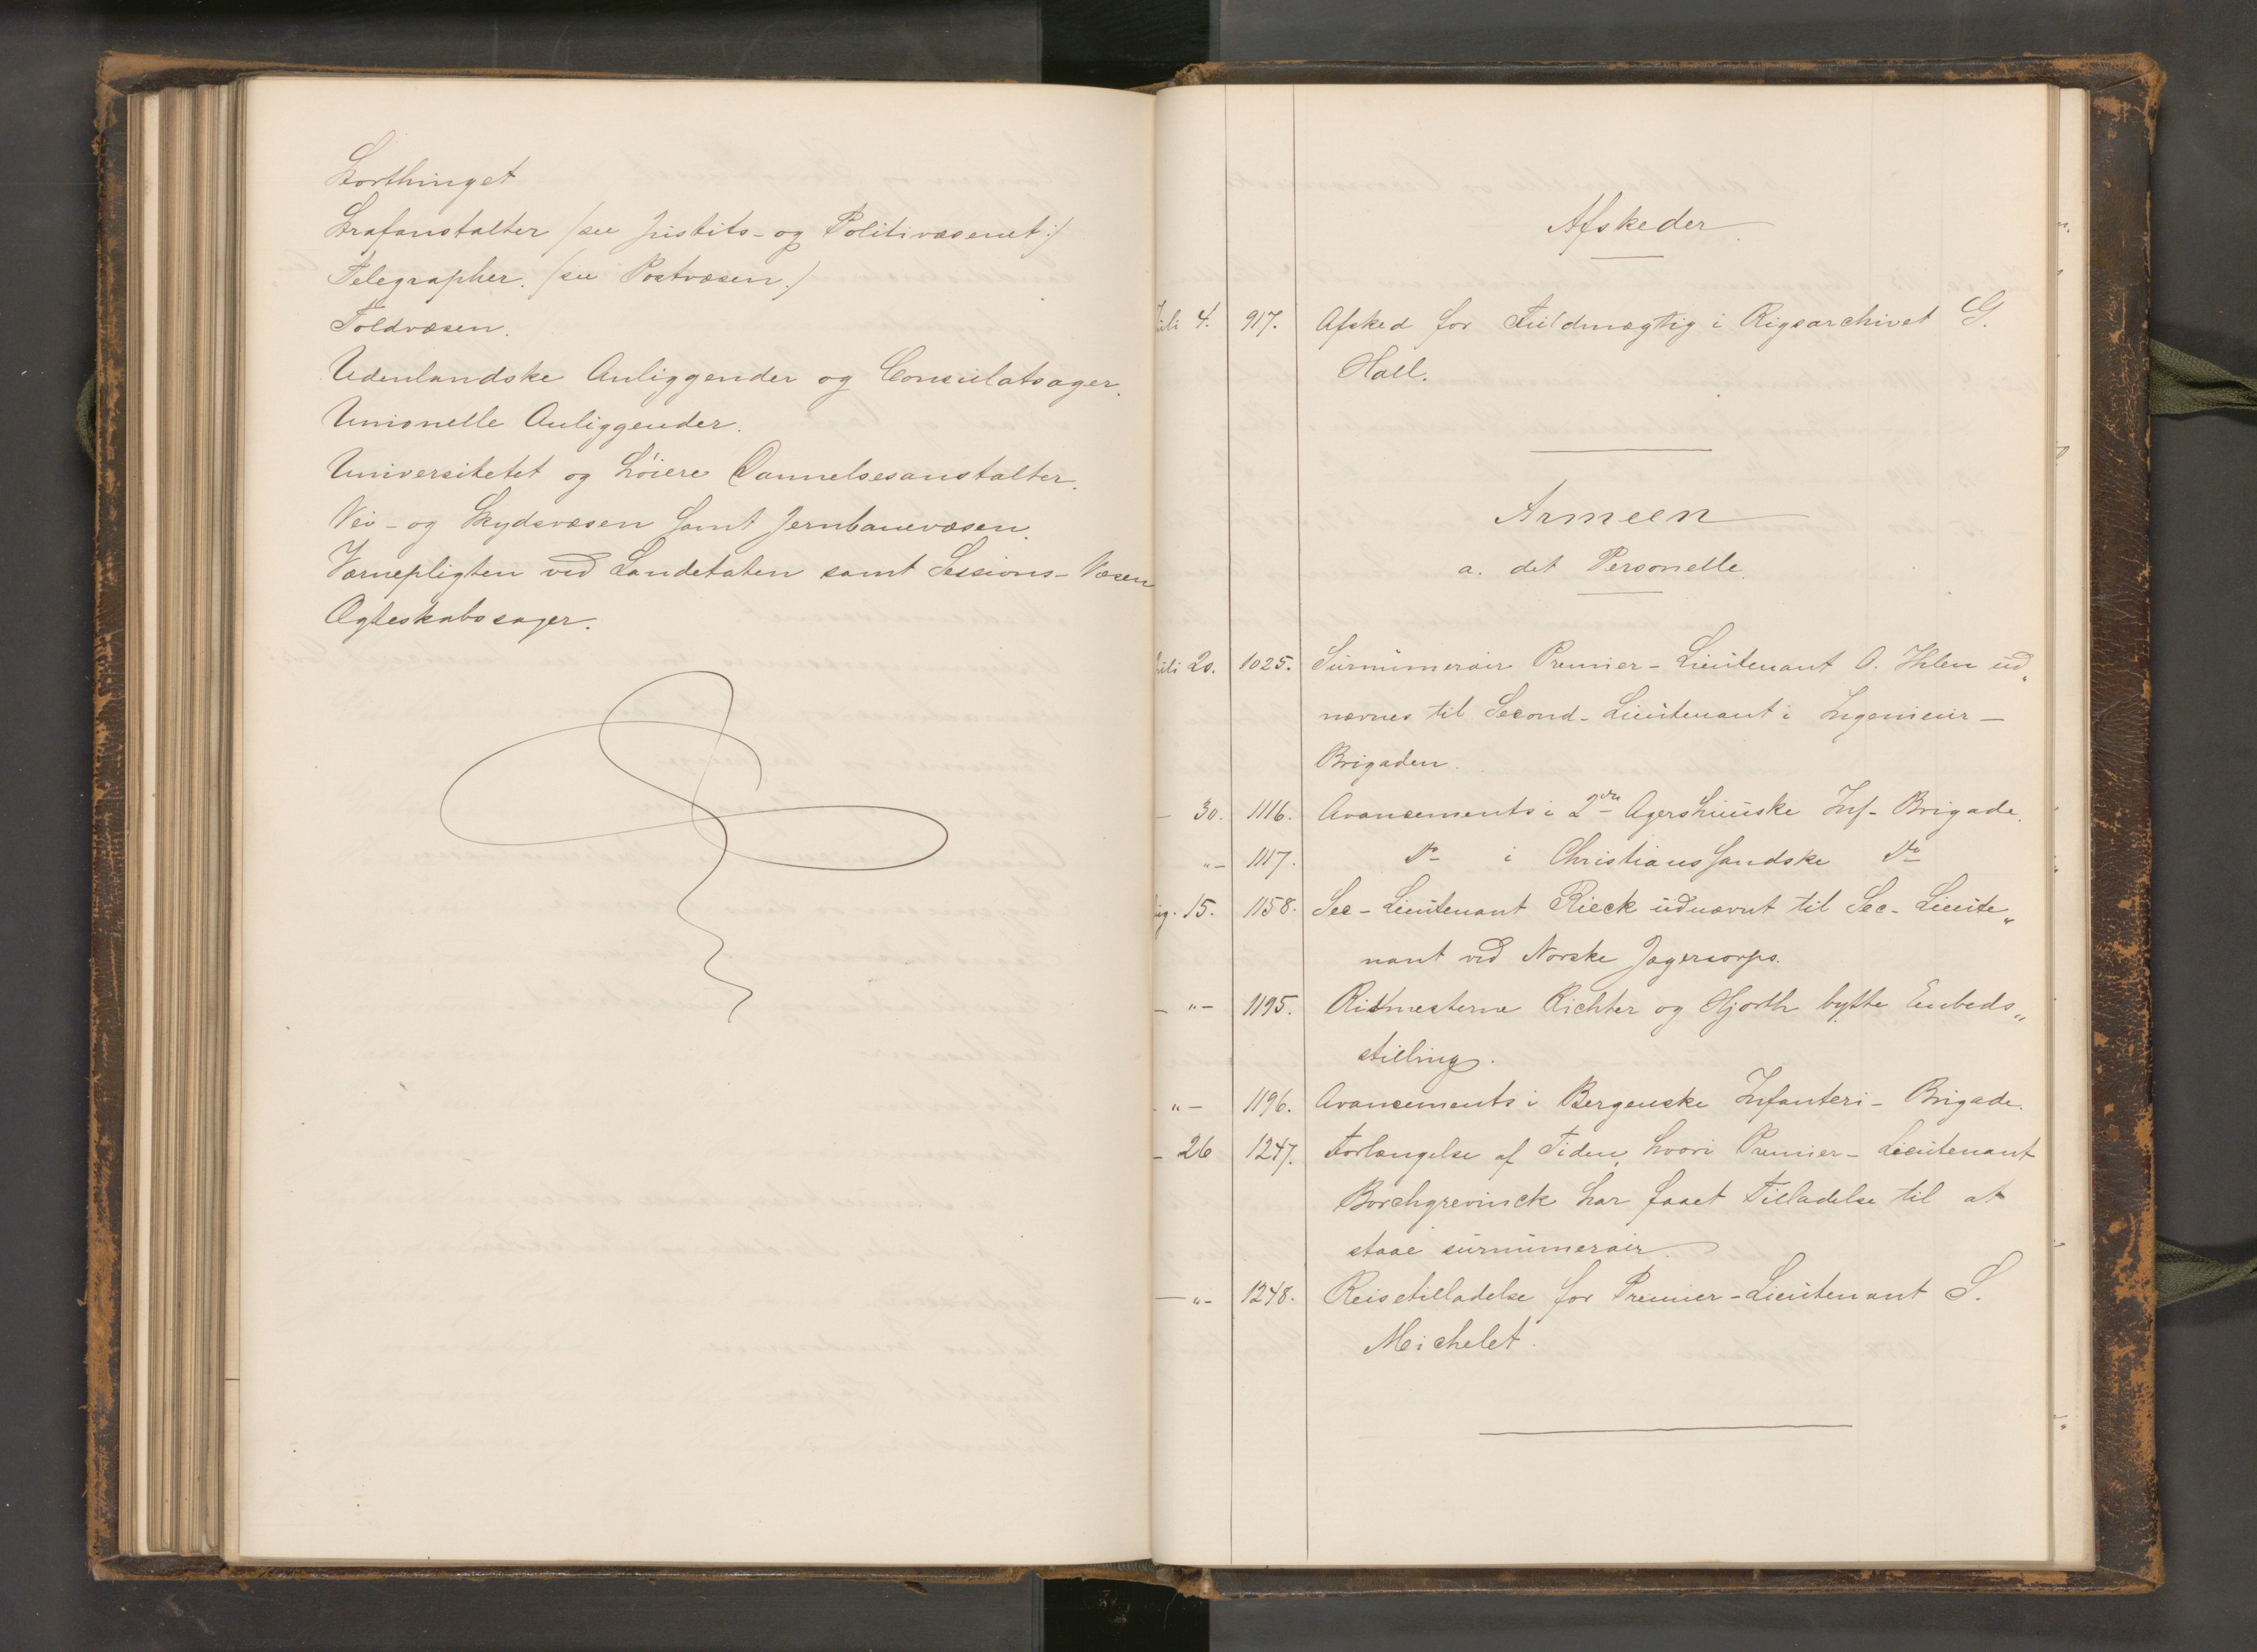 Storthinget
Strafanstalter /see Justits- og Politivæsenet:/
Telegrapher. /see Postvæsen./
Toldvæsen.
Udenlandske Anliggender og Consulatsager.
Unionelle Anliggender.
Universitetet og höiere Dannelsesanstalter.
Vei- og Skydsvæsen samt Jernbanevæsen.
Værnepligten ved Landetaten samt Sessions-Væsen
Ægteskabssager.
Afskeder.
Juli 4. 917. Afsked for Fuldmægtig i Rigsarchivet G.
Hall.
Armeen
a. det Personelle.
Juli 20. 1025. Surnumerair Premier-Lieutenant O. Ihlen ud„
nævnes til Second-Lieutenant i Ingenieur-
Brigaden.
— 30. 1116. Avancements i 2den Agershuuske Inf-Brigade.
"— 1117. do i Christianssandske do
Aug. 15. 1158. Sec-Lieutenant Rieck udnævnt til Sec-Lieute„
nant ved Norske Jægercorps.
— "— 1195. Ritmesterne Richter og Hjorth bytte Embeds„
stilling.
- "— 1196. Avancements i Bergenske Infanteri-Brigade.
- 26 1247. Forlængelse af Tiden, hvori Premier-Lieutenant
Borchgrevinck har faaet Tilladelse til at
staae surnumerair.
— "- 1248. Reisetilladelse for Premier-Lieutenant S.
Michelet.